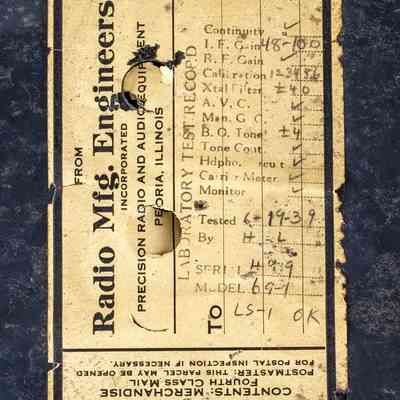 FROM
Radio Mfg. Engineers
INCORPORATED
PRECISION RADIO AND AUDIO EQUIPMENT
PEORIA, ILLINOIS
TO
LABORATORY TEST RECORD
Continuity ✓
I. F. Gain 48-100
R. F. Gain ✓
Calibration 123456
Xtal Filter ±40
A. V. C. ✓
Man. G. C. ✓
B. O. Tone ±4
Tone Cont. ✓
Hdpho. ✓
Carrier Meter ✓
Monitor ✓
Tested 6-19-39
By
SERIAL
MODEL 69-1
LS-1 OK
CONTENTS: MERCHANDISE
FOURTH CLASS MAIL
POSTMASTER: THIS PARCEL MAY BE OPENED
FOR POSTAL INSPECTION IF NECESSARY.